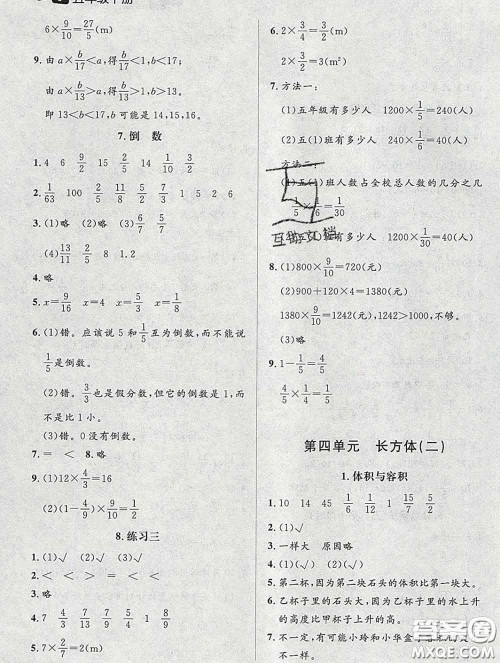 五年级下册
6×9/10=27/5(m)
9. 由a×b/17<a,得b/17<1,b<17;
由a×b/13>a,得b/13>1,b>13;
即13<b<17,b可能是14,15,16。
7. 倒 数
1. 4 6 9/2 15 2/5 14/3 1 5/6
2. 1/63 100 2/5 3/2 1/8 1 5 2 6
3. (1)略 (2)略 (3)6/7 5/7
(4)13/11 2/5 8/3 (5)略
4. 略
5. x=9/16 x=4/3 x=2/5 x=1/8
6. (1)错。应该说5和1/5互为倒数,而不能说
1/5是倒数。
(2)错。3/3也是假分数,但它的倒数是1,而
不是比1小。
(3)错。0没有倒数。
7. = < 8. 略
9. (1)12×4/3=16
(2)(1-4/9)×3/10=1/6
8. 练习三
1. (1)√ (2)√ (3)√
2. < = < <
3. 略
4. 7 4/13 7/13 2/7 1 6
5. 7×2/7=2(m)
6. 2×1/3=2/3(m)
2/3×3=2(m²)
7. 方法一:
(1)五年级有多少人 1200×1/5=240(人)
(2)五(1)班有多少人 240×1/6=40(人)
方法二:
(1)五(1)班人数占全校总人数的几分之几
1/5×1/6=1/30
多少人 1200×1/30=40(人)
8. (1)800×9/10=720(元)
(2)900+120×4=1380(元)
1380×9/10=1242(元),1242>1000,不够。
(3)略
9. 1-1/5=4/5
4/5×1/5=4/25
第四单元 长方体(二)
1. 体积与容积
1. 10 14 45 1/6 1/12 1 15/7 5/2
2. (1)√
3. 一样大 原因略
4. (1)√ (2)√
5. 第二杯,因为第二块石头的体积比第一块大。
6. 乙杯子里的石头大,因为乙杯子里的水上升
的高度比甲杯子上升的高。
7. 不一定,有可能小玲和小华盒
答案圈
MXQE.COM